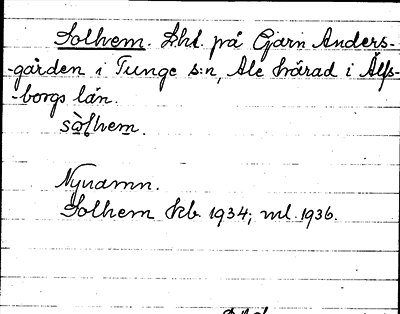 Solhem. Lht. på Gjärn Anders-
-gården i Tunge s:n, Ale härad i Älfs-
-borgs län.
sòlhem.
Nynamn.
Solhem kb. 1934; ml. 1936.